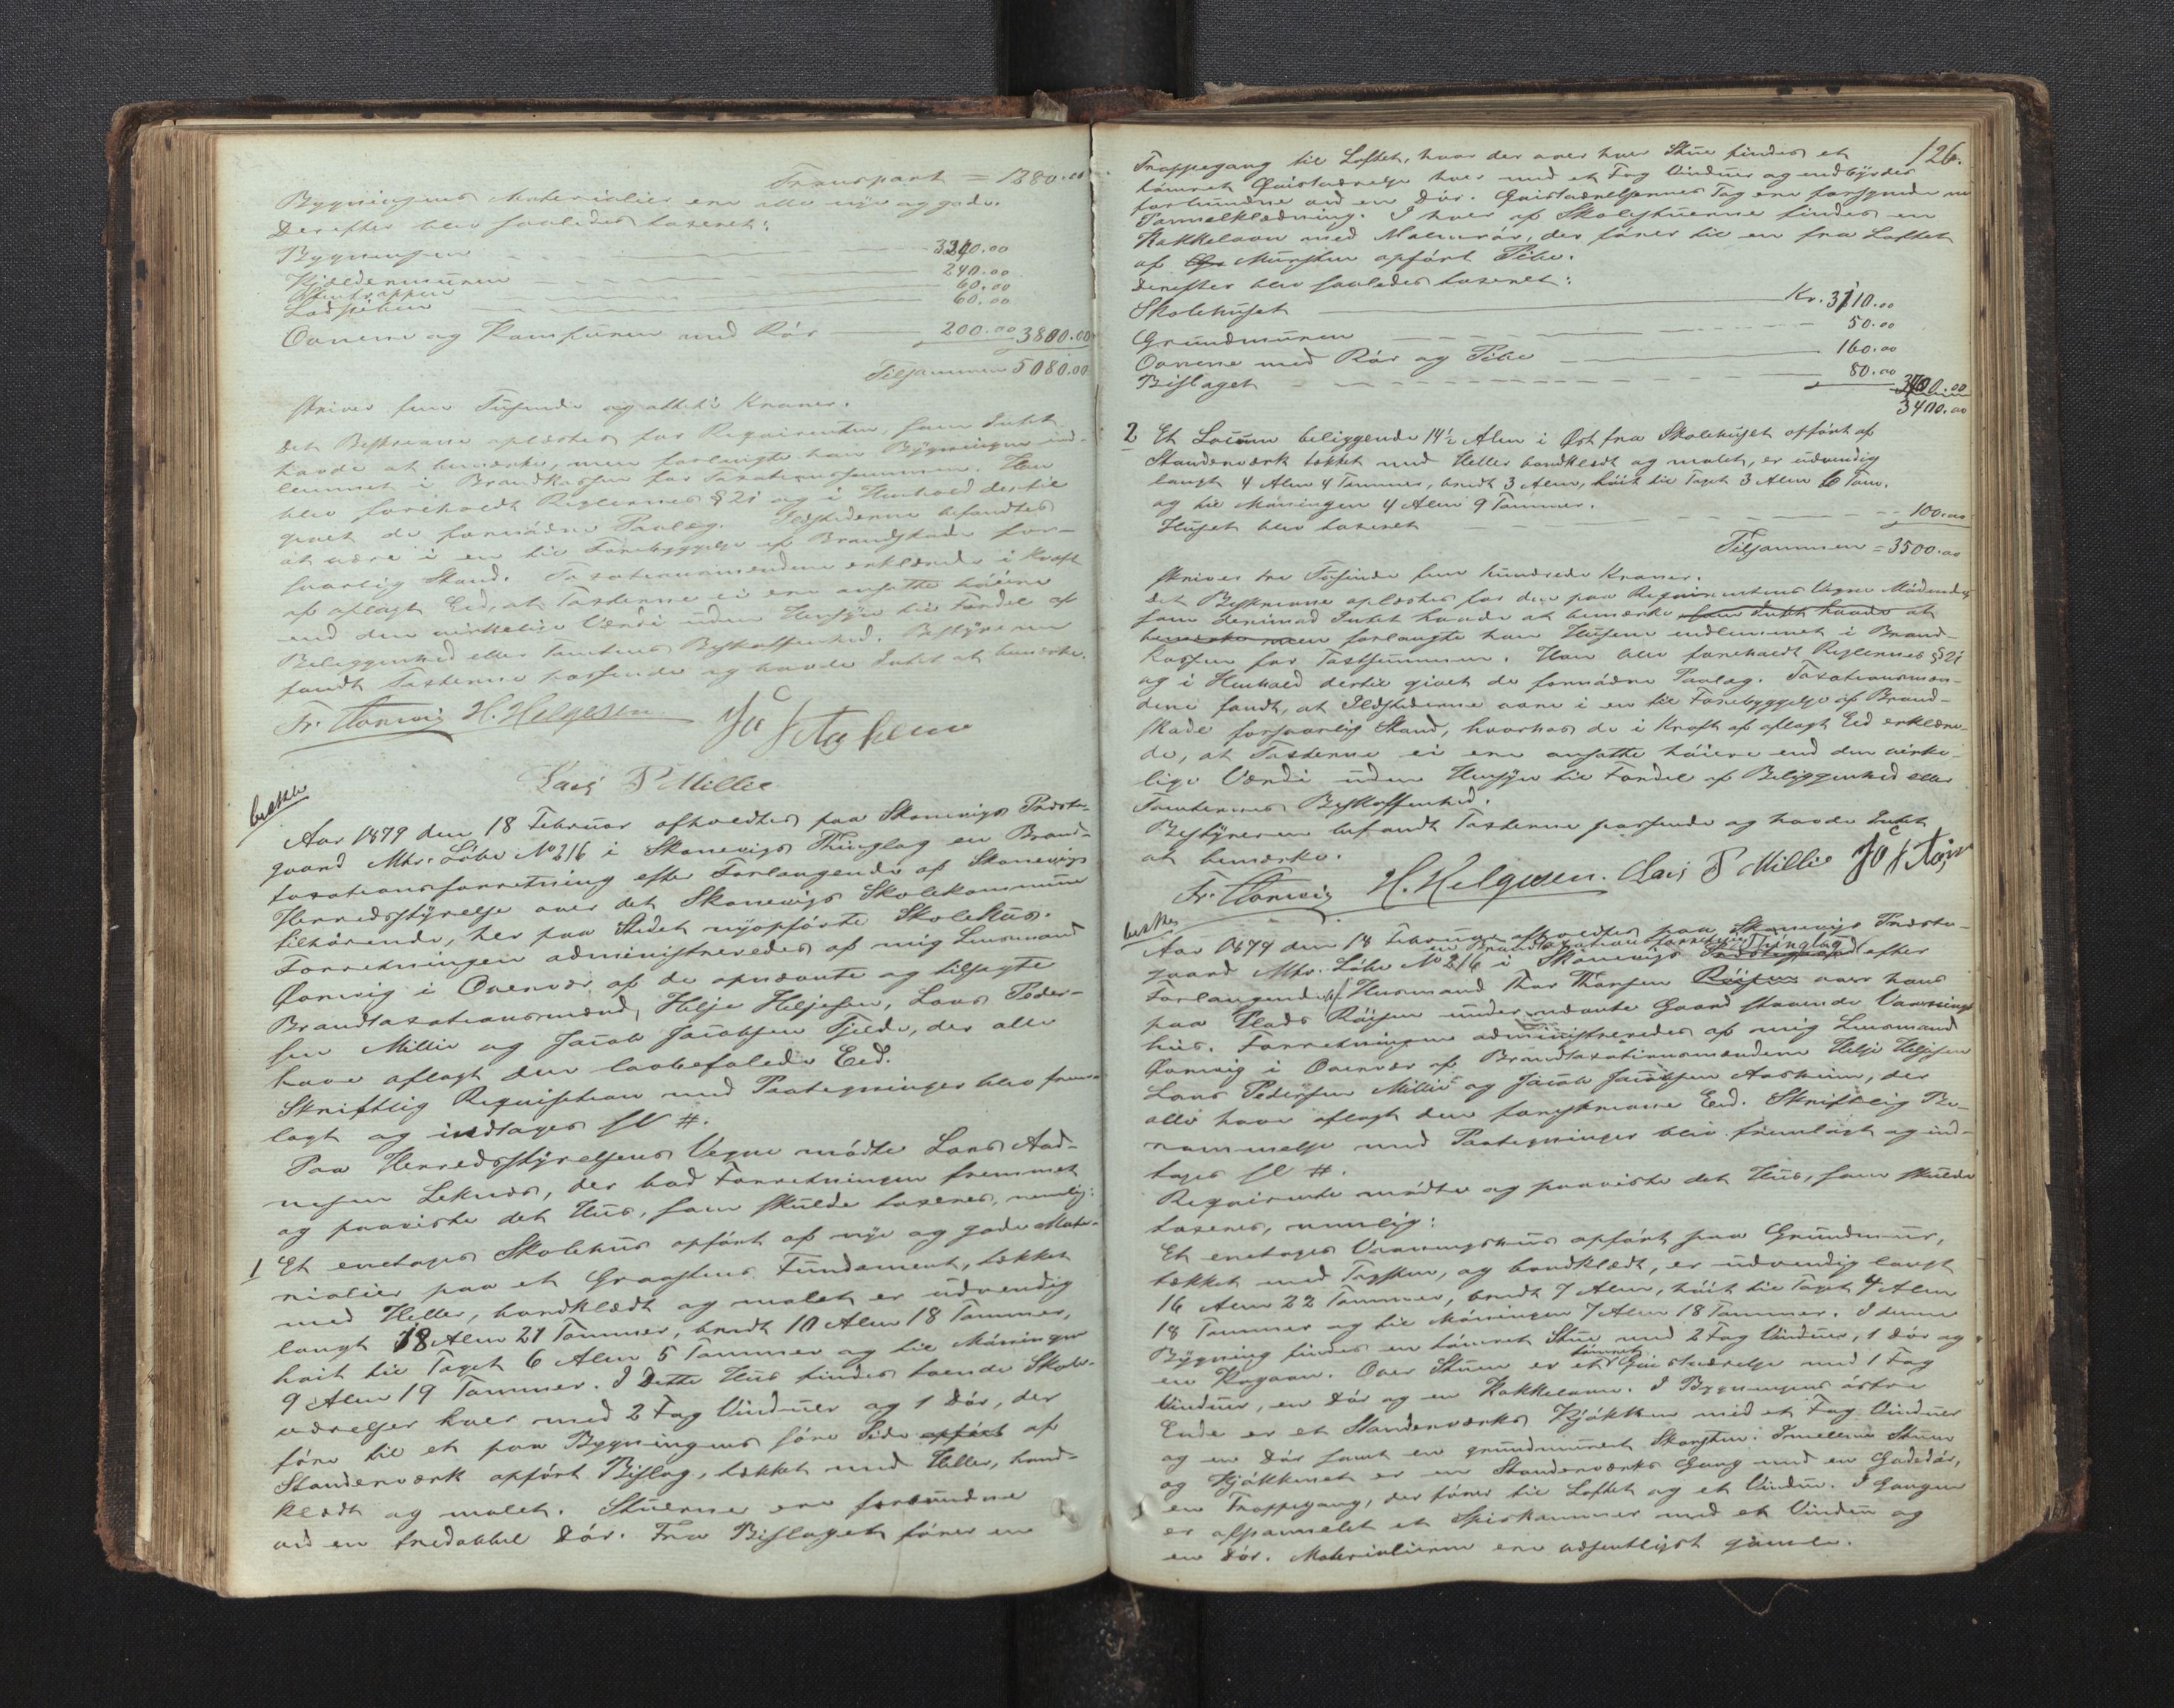 Transport = 1280.00
Bygningens Materialier ere alle nye og gode.
Derefter blev saaledes taxeret:
Bygningen 3240.00
Kjeldermuren 240.00
Stentrappen 60.00
60.00
Ovnene og Komfuren med Rör 200.00 3800.00
Tilsammen 5080.00
skriver fem Tusinde og otteti Kroner.
Det Beskrevne oplæstes for Requirenten, som Intet
havde at bemærke, men forlangte han Bygningen ind-
lemmet i Brandkassen for Taxationssummen. Han
blev foreholdt Reglernes § 21 og i Henhold dertil
givet de fornödne Paalæg. Ildstederne befandtes
at være i en til Forebyggelse af Brandskade for-
svarlig Stand. Taxationsmændene erklærede i Kraft
af aflagt Eed, at Taxterne ei ere ansatte höiere
end den virkelige Værdi uden Hensyn til Fordel af
Beliggenhed eller Tomtens Beskaffenhed. Bestyreren
fandt Taxterne passende og havde Intet at bemærke.
Fr. Gorvig H. Helgesen
Lars P Millie
Aar 1879 den 18 Februar afholdtes paa Skonevigs Præste-
gaard Mtr. Löbe No 216 i Skonevigs Thinglag en Brand-
taxationsforretning efter Forlangende af Skonevigs
Herredsstyrelse over det Skonevigs Skolekommune
tilhörende, her paa Stedet nyopförte Skolehus.
Forretningen administreredes af mig Lensmand
Gorvig i Overvær af de opnævnte og tilsagte
Brandtaxationsmænd, Helje Heljesen, Lars Peder-
sen Millie og Jacob Jacobsen Fjelde, der alle
have aflagt den lovbefalede Eed.
Skriftlig Requisition med Paategninger blev frem-
lagt og indtages sl #.
Paa Herredsstyrelsens Vegne mödte Lars Aad-
nesen Leknes, der bad Forretningen fremmet
og paaviste det Hus, som skulde taxeres, nemlig:
1 Et enetages Skolehus opfört af nye og gode Mate-
rialier paa et Graastens Fundament, tækket
med Heller, bordklædt og malet er udvendig
langt 18 Alen 21 Tommer, bredt 10 Alen 18 Tommer,
höit til Taget 6 Alen 5 Tommer og til Möningen
9 Alen 19 Tommer. I Dette Hus findes tvende Skole-
værelser hver med 2 Fag Vinduer og 1 Dör, der
före til et paa Bygningens söre Side opfört af
Standerværk opfört Bislag, tækket med Heller, bord-
klædt og malet. Stuerne ere forbundne
ved en tredobbel Dör. Fra Bislaget förer en
126.
Trappegang til Loftet, hvor der over hver Stue findes et
tömret Qvistværelse hver med et Fag Vinduer og indbyrdes
forbundne ved en Dör. Qvistværelsernes Tag ere forsynede m
Pannelklædning. I hver af Skolestuerne findes en
Kakkelovn med Malmrör, der förer til en fra Loftet
af Mursten opfört Pibe.
Derefter blev saaledes taxeret:
Skolehuset Kr. 3110.00
Grundmuren 50.00
Ovnene med Rör og Pibe 160.00
Bislaget 80.00
3400.00
2 Et Locum beliggende 14½ Alen i Öst fra Skolehuset opfört af
Standerværk tækket med Heller bordklædt og malet, er udvendig
langt 4 Alen 4 Tommer, bredt 3 Alen, höit til Taget 3 Alen 6 Tom.
og til Möningen 4 Alen 9 Tommer.
Huset blev taxeret 100.00
Tilsammen = 3500.00
skriver tre Tusinde fem hundrede Kroner.
Det Beskrevne oplæstes for den paa Requirentens Vegne Mödende
som Intet havde at bemærke som Intet havde at
bemærke men forlangte han Husene indlemmet i Brand-
kassen for Taxtsummen. Han blev foreholdt Reglernes § 21
og i Henhold dertil givet de fornödne Paalæg. Taxationsmæn-
dene fandt, at Ildstederne vare i en til Forebyggelse af Brand-
skade forsvarlig Stand, hvorhos de i Kraft af aflagt Eed erklære-
de, at Taxterne ei ere ansatte höiere end den virke-
lige Værdi uden Hensyn til Fordel af Beliggenhed eller
Tomternes Beskaffenhed.
Bestyreren befandt Taxterne passende og havde Intet
at bemærke.
Fr. Gorvig H. Helgesen. Lars P Millie
Aar 1879 den 18 Februar afholdtes paa Skonevigs Præste-
gaard Mtr. Löbe No 216 i Skonevigs Thinglag en Brandtaxationsforretning efter
Forlangende af Husmand Thor Thorsen Röisen over hans
paa Plads Röisen under nævnte Gaard staaende Vaanings-
hus. Forretningen administreredes af mig Lensmand
Gorvig i Overvær af Brandtaxationsmændene Helje Heljesen
Lars Pedersen Millie og Jacob Jacobsen Aasheim, der
alle have aflagt den foreskrevne Eed. Skriftlig Be-
rammelse med Paategninger blev fremlagt og ind-
tages sl #.
Requirente mödte og paaviste det Hus, som skulde
taxeres, nemlig:
Et enetages Vaaningshus opfört paa Grundmur,
tækket med Tagsten, og bordklædt, er udvendig langt
16 Alen 22 Tommer, bredt 7 Alen, höit til Taget 4 Alen
18 Tommer og til Möningen 7 Alen 18 Tommer. I denne
Bygning findes en tömret Stue med 2 Fag Vinduer, 1 Dör og
en Bagovn. Over Stuen er et tömret Qvistværelse med 1 Fag
Vinduer, en Dör og en Kakkelovn. I Bygningens östre
Ende er et Standerværks Kjökken med et Fag Vinduer
og en Dör samt en grundmuret Skorsten. Imellem Stuen
og Kjökkenet er en Standerværks Gang med en Gadedör,
en Trappegang, der förer til Loftet og et Vindu. I Gangen
er afpannelet et Spiskammer med et Vindu og
en Dör. Materialierne ere væsentligst gamle.